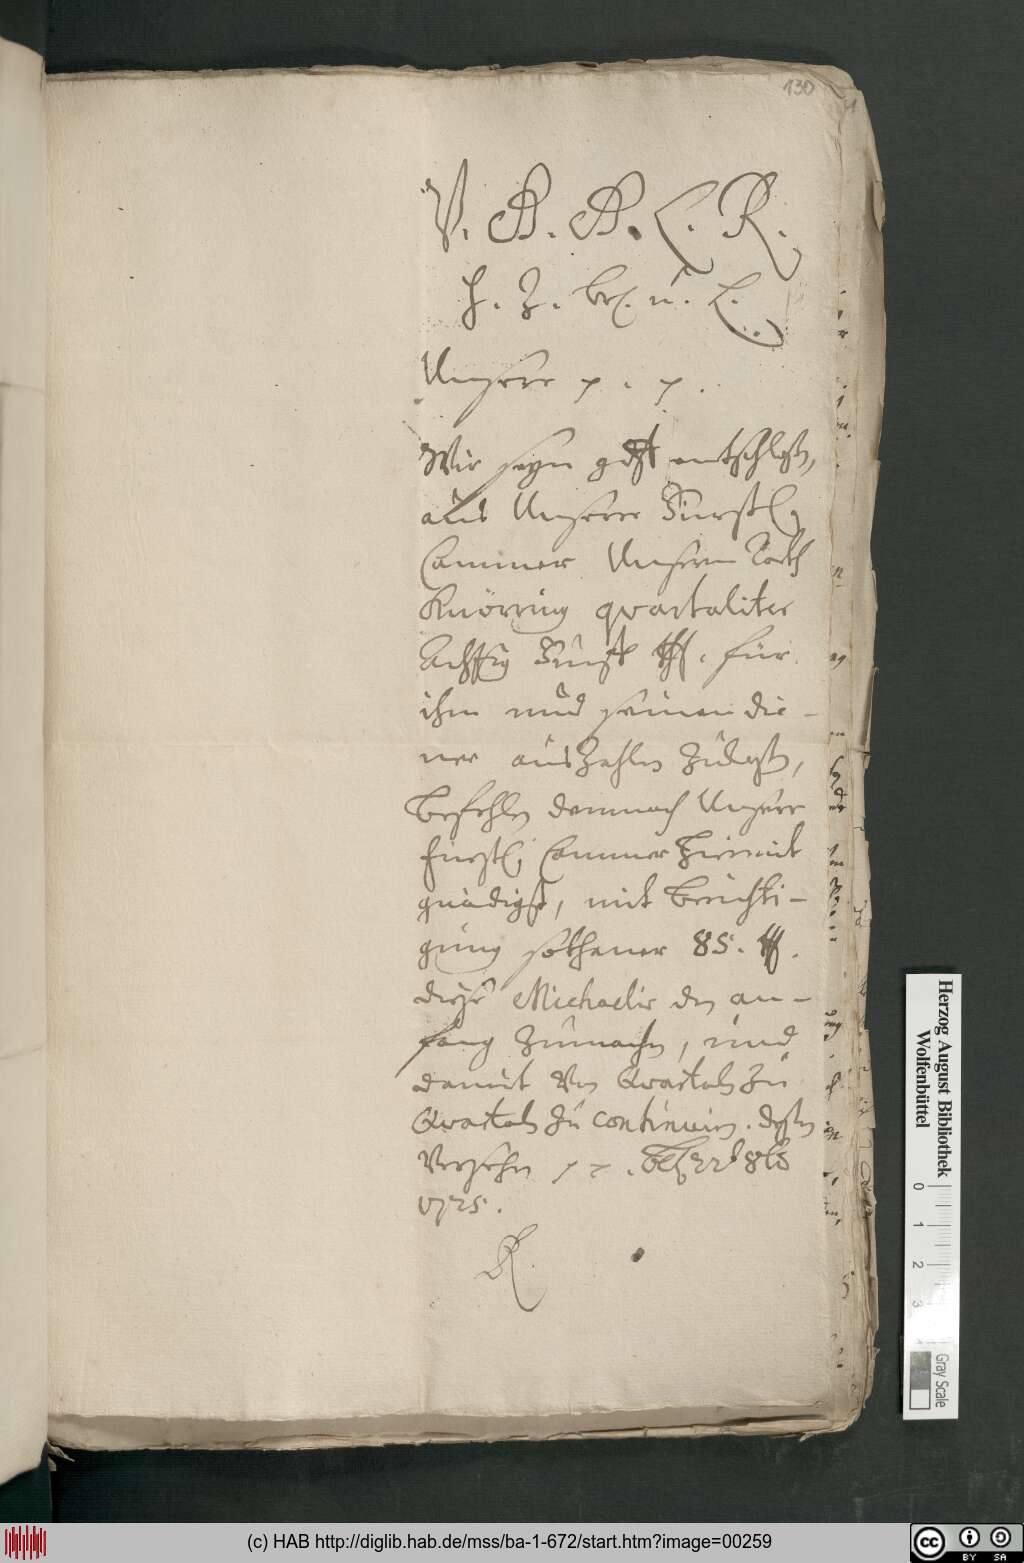 130
V. G. G. L. R.
H. Z. Br. u. L.
Unsere p. p.
Wir seyn gdst entschlossen,
aus Unserer Fürstl.
Cammer Unserm Rath
Knörring quartaliter
Achtzig Fünff für
ihm und seinen die-
ner auszahlen zu lassen,
befehlen demnach Unserer
Fürstl. Cammer hiemit
gnädigst, mit berichti-
gung sothaner 85.
diese Michaelis den an-
fang zu machen, und
damit von Quartal zu
Quartal zu continuiren. dessen
Versehen p p. 8bris
1725.
R.
Herzog August Bibliothek
Wolfenbüttel
0 1 2 3
Gray Scale
(c) HAB http://diglib.hab.de/mss/ba-1-672/start.htm?image=00259
cc BY SA